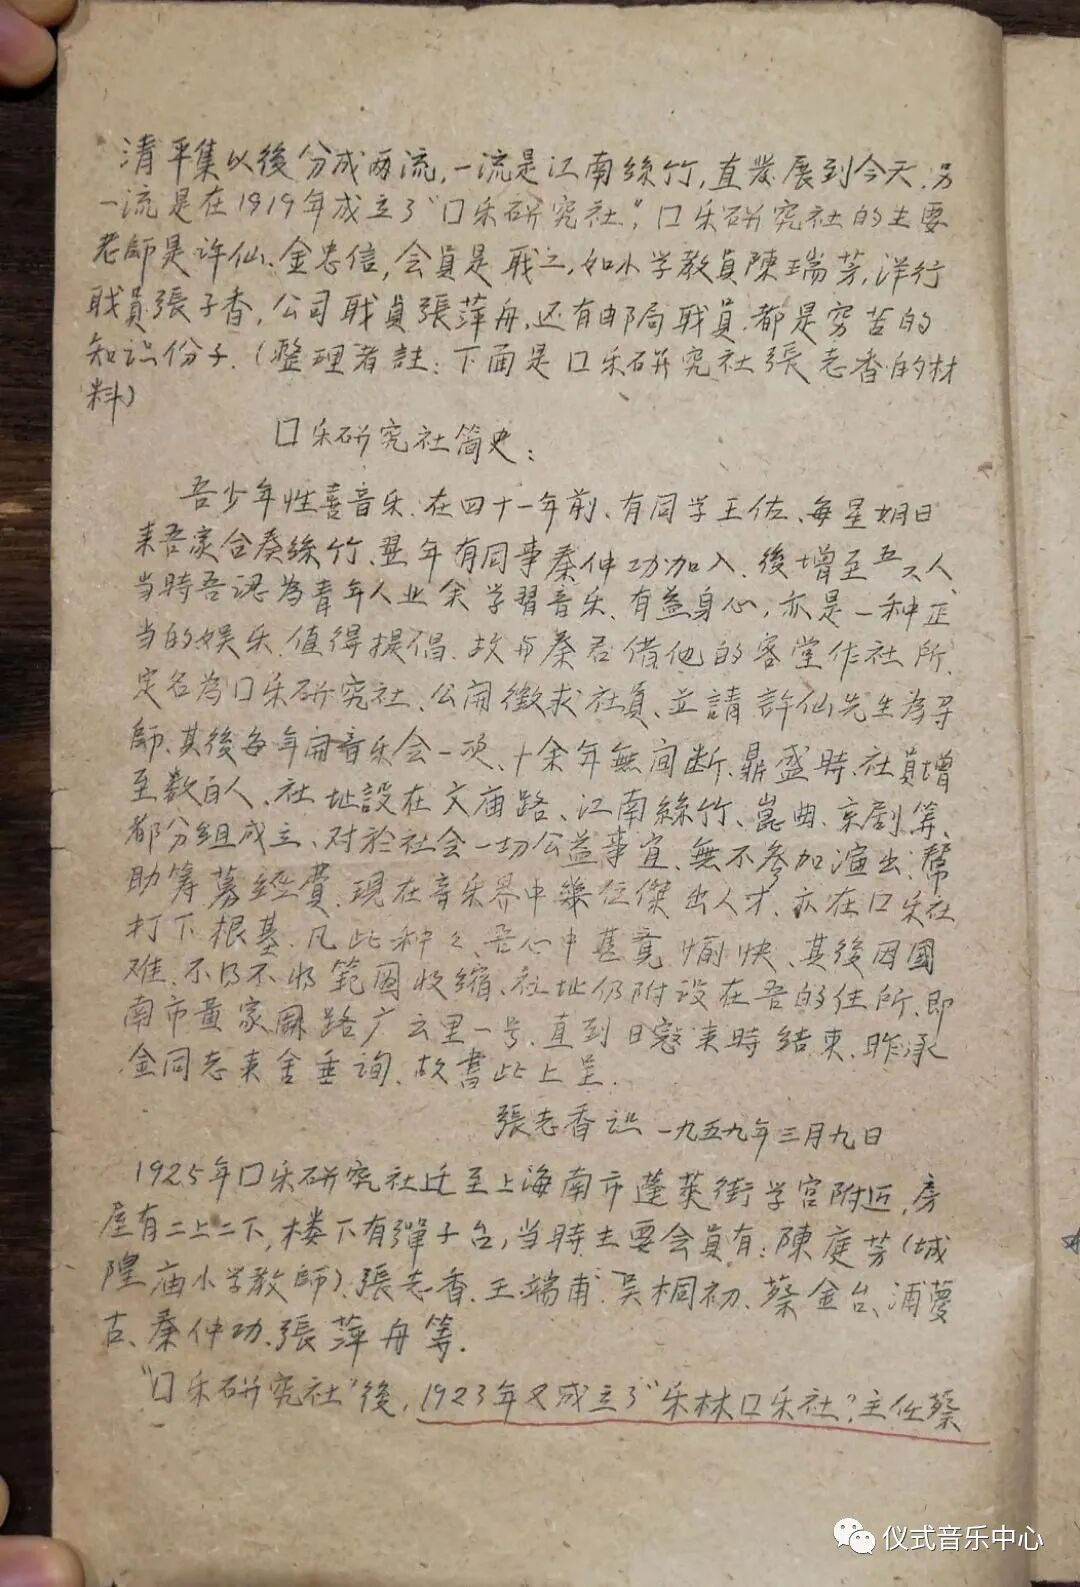 清平集以後分成两流,一流是江南絲竹,直發展到今天.另
一流是在1919年成立了“口乐研究社”,口乐研究社的主要
老師是许仙、金忠信,会員是职工,如小学教員陳瑞芳,洋行
职員張子香,公司职員張萍舟,还有邮局职員.都是穷苦的
知识份子.(整理者註:下面是口乐研究社張志香的材
料)
口乐研究社简史:
吾少年性喜音乐.在四十一年前、有同学王佐、每星期日
来吾家合奏絲竹、翌年有同事秦仲功加入、後增至五六人、
当時吾认為青年人业余学習音乐、有益身心,亦是一种正
当的娱乐、值得提倡.故与秦君借他的客堂作社所、
定名為口乐研究社、公開徵求社員、並請許仙先生為导
師、其後每年開音乐会一次、十余年無间断、鼎盛時、社員增
至数百人、社址設在文庙路、江南絲竹、崑曲、京剧等、
都分组成立、对於社会一切公益事宜、無不参加演出、帮
助筹募经費.現在音乐界中幾位傑出人才、亦在口乐社
打下根基、凡此种々、吾心中甚覺愉快、其後因國
难、不得不将範围收缩、社址仍附设在吾的住所、即
南市黄家阙路广云里一号、直到日寇来時结束、昨承
金同志来舍垂询、故書此上呈.
張志香识 一九五九年三月九日
1925年口乐研究社迁至上海南市蓬莱街学宫附近,房
屋有二上二下,楼下有彈子台,当時主要会員有:陳庭芳(城
隍庙小学教師)、張志香、王端甫、吴桐初、蔡金台、浦夢
古、秦仲功、張萍舟等.
“口乐研究社”後,1923年又成立了“乐林口乐社”,主任蔡
仪式音乐中心